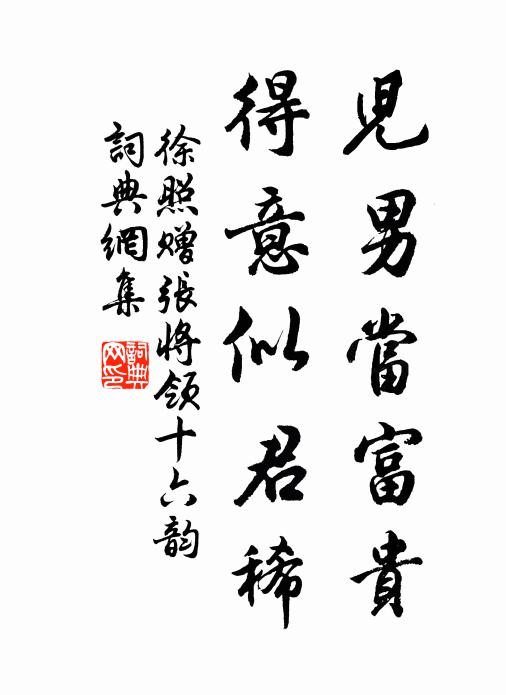 兒男當富貴
得意似君稀
徐照贈張將領十六韵
詞典網集
詞典網印